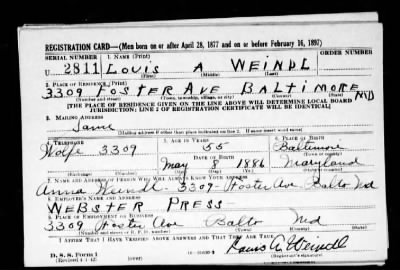 REGISTRATION CARD—(Men born on or after April 28, 1877 and on or before February 16, 1897)
SERIAL NUMBER 1. NAME (Print) ORDER NUMBER
U 2811 LOUIS A WEINDL
(First) (Middle) (Last)
2. PLACE OF RESIDENCE (Print)
3309 FOSTER AVE BALTIMORE MD
(Number and street) (Town, township, village, or city) (County) (State)
[THE PLACE OF RESIDENCE GIVEN ON THE LINE ABOVE WILL DETERMINE LOCAL BOARD
JURISDICTION; LINE 2 OF REGISTRATION CERTIFICATE WILL BE IDENTICAL]
3. MAILING ADDRESS
Same
[Mailing address if other than place indicated on line 2. If same insert word same]
4. TELEPHONE 5. AGE IN YEARS 6. PLACE OF BIRTH
Wolfe 3309 55 Baltimore
DATE OF BIRTH
May 8 1886 Maryland
7. NAME AND ADDRESS OF PERSON WHO WILL ALWAYS KNOW YOUR ADDRESS
Anna Weindl - 3309 - Foster Ave Balto Md
8. EMPLOYER'S NAME AND ADDRESS
WEBSTER PRESS -
9. PLACE OF EMPLOYMENT OR BUSINESS
3309 Foster Ave Balto Md
I AFFIRM THAT I HAVE VERIFIED ABOVE ANSWERS AND THAT THEY ARE TRUE.
D. S. S. Form 1
Louis A Weindl
(Registrant's signature)